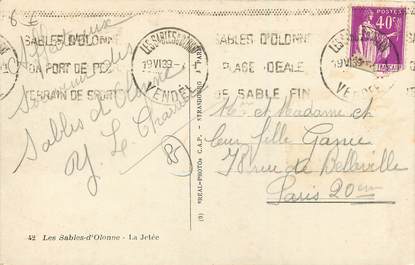 40c
SABLES D'OLONNE
SON PORT DE PÊC
TERRAIN DE SPORTS
LES SABLES D'OLONNE
19 VI 39
VENDÉE
SABLES D'OLONNE
PLAGE IDÉALE
DE SABLE FIN
LES SABLES D'OLONNE
19 VI 39
VENDÉE
des
Sables d'Olonne
Y. L.
85
Mr et Madame et
leur fille
78 rue de Belleville
Paris 20em
"REAL-PHOTO" C.A.P. - STRASBOURG & PARIS
(9)
42 Les Sables-d'Olonne - La Jetée